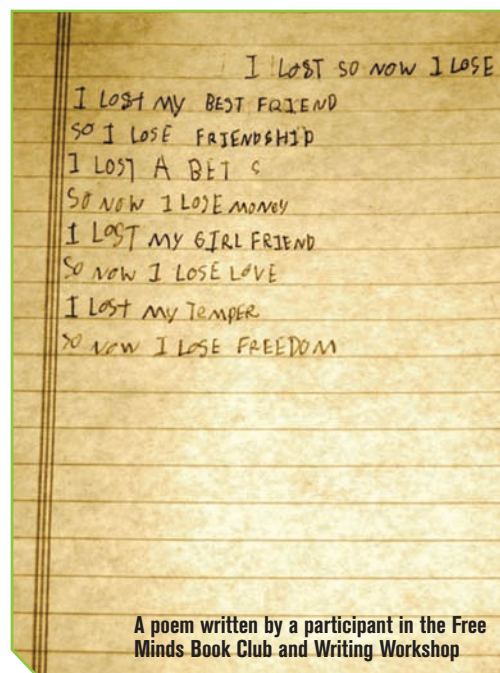 I LOST SO NOW I LOSE
I LOST MY BEST FRIEND
SO I LOSE FRIENDSHIP
I LOST A BET
SO NOW I LOSE MONEY
I LOST MY GIRL FRIEND
SO NOW I LOSE LOVE
I LOST MY TEMPER
SO NOW I LOSE FREEDOM
A poem written by a participant in the Free
Minds Book Club and Writing Workshop